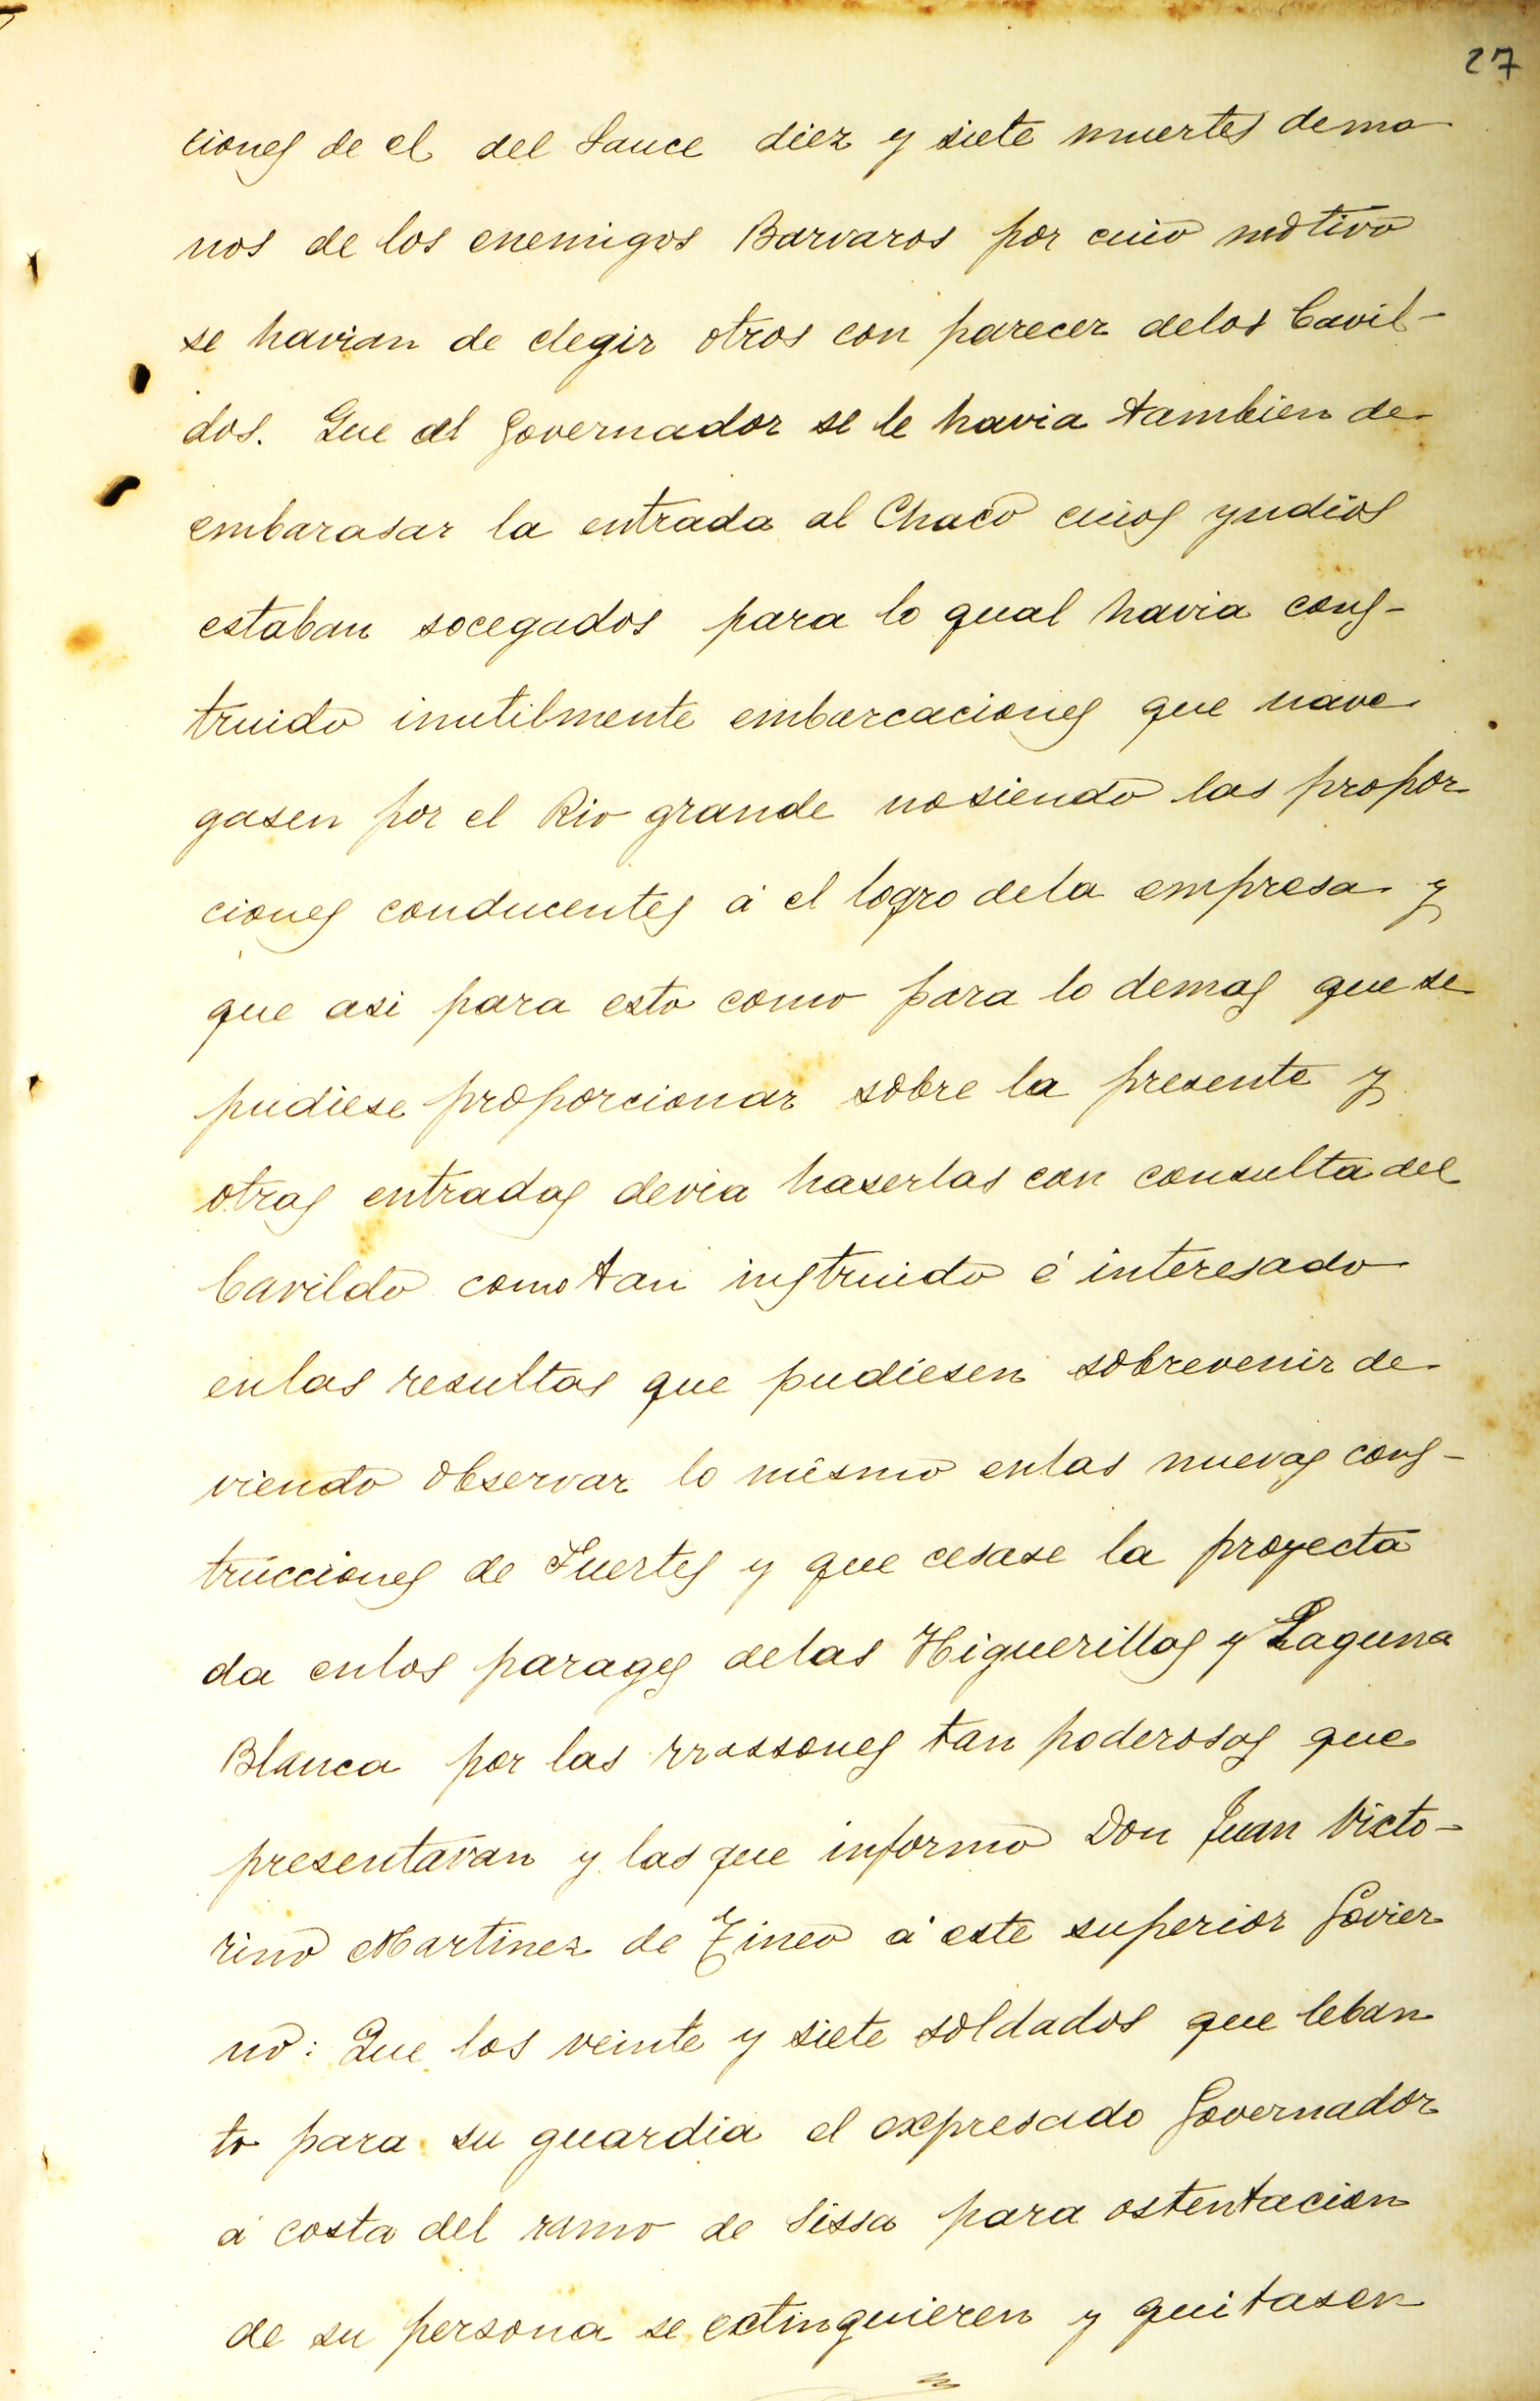 27
ciones de el del Sauce diez y siete muertes dema
nos de los enemigos Barvaros por cuio motivo
se havian de elegir otros con parecer delos Cavil-
dos. Que al Governador se le havia tambien de
embarasar la entrada al Chaco cuios yndios
estaban socegados para lo qual havia cons-
truido inutilmente embarcaciones que nave
gasen por el Rio grande nosiendo las propor
ciones conducentes á el logro dela empresa y
que asi para esto como para lo demas que se
pudiese proporcionar sobre la presente y
otras entradas devia haserlas con consulta del
Cavildo como tan instruido é interesado
enlas resultas que pudiesen sobrevenir de
viendo observar lo mismo enlas nuevas cons-
trucciones de Fuertes y que cesase la proyecta
da enlos parages delas Higuerillas y Laguna
Blanca por las rrassones tan poderosas que
presentavan y las que informo Don Juan Victo-
rino Martinez de Tineo á este superior Govier
no: Que los veinte y siete soldados que leban
to para su guardia el expresado Governador
á costa del ramo de Sissa para ostentacion
de su persona se extinguieren y quitasen